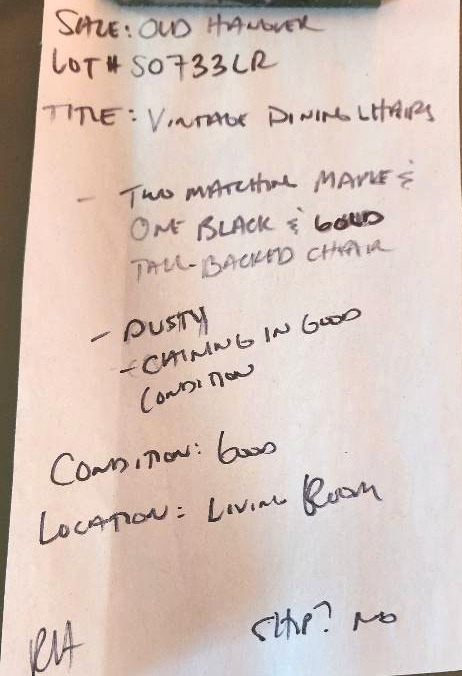 SALE: OLD HANOVER
LOT# SO733LR
TITLE: VINTAGE DINING CHAIRS
- TWO MATCHING MAPLE &
ONE BLACK & GOLD
TALL-BACKED CHAIR
- DUSTY
- CAINING IN GOOD
CONDITION
CONDITION: GOOD
LOCATION: LIVING ROOM
SHIP? NO